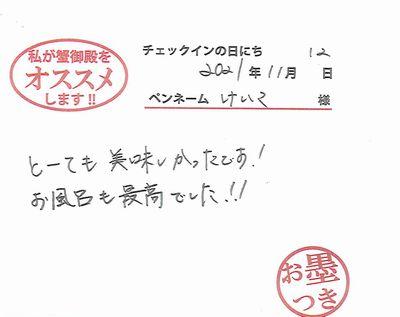 私が蟹御殿を
オススメ
します!!
チェックインの日にち 12
2021年11月 日
ペンネーム けいこ 様
とーても 美味しかったです!
お風呂も最高でした!!!
お墨
つき